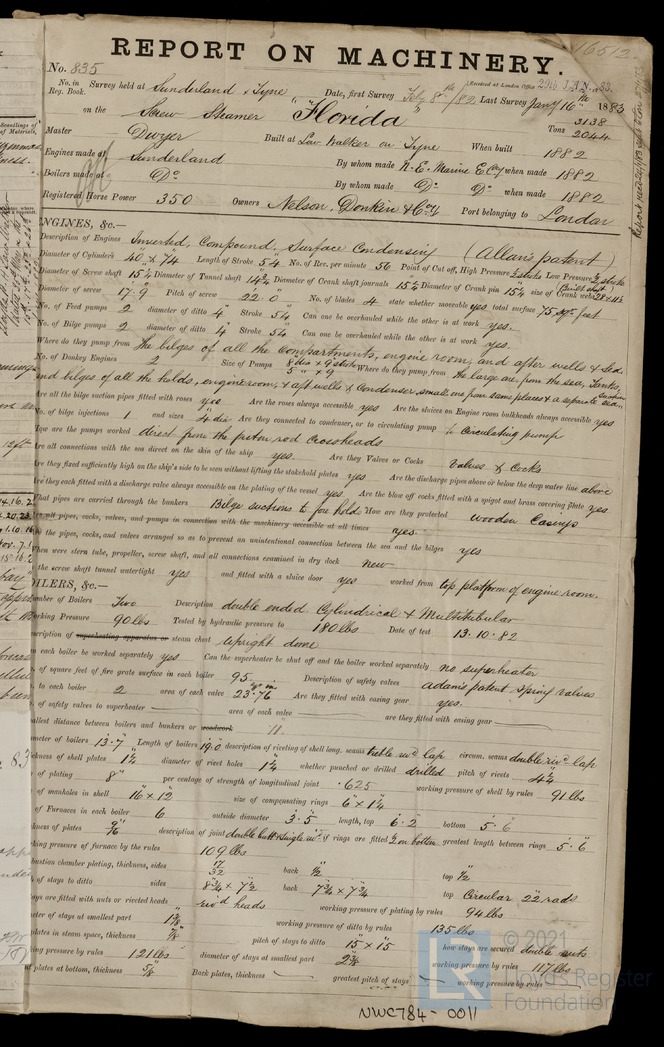 16512
REPORT ON MACHINERY.
No. 835
Received at London Office 29th JAN. 83
No. in Reg. Book. Survey held at Sunderland & Tyne Date, first Survey Feby 8th/82 Last Survey Jany 16th 1883
on the Screw Steamer "Florida" Tons 3138 2044
Master Dwyer Built at Low Walker on Tyne When built 1882
Engines made at Sunderland By whom made N.E. Marine E. Coy when made 1882
Boilers made at Do. By whom made Do. Do. when made 1882
Registered Horse Power 350 Owners Nelson, Donkin & Coy Port belonging to London
NGINES, &c.—
Description of Engines Inverted, Compound, Surface Condensing (Allan's patent)
Diameter of Cylinders 40" x 74" Length of Stroke 54" No. of Rev. per minute 56 Point of Cut off, High Pressure Low Pressure
Diameter of Screw shaft 15¼ Diameter of Tunnel shaft 14¾ Diameter of Crank shaft journals 15¼ Diameter of Crank pin 15¼ size of Crank webs
Diameter of screw 17.9 Pitch of screw 22.0 No. of blades 4 state whether moveable yes total surface 75 sqr. feet
No. of Feed pumps 2 diameter of ditto 4" Stroke 54" Can one be overhauled while the other is at work yes.
No. of Bilge pumps 2 diameter of ditto 4" Stroke 54" Can one be overhauled while the other is at work yes.
Where do they pump from The bilges of all the compartments, engine room, and after wells & Sea.
No. of Donkey Engines 2 Size of Pumps 8" dia x 9" stroke 5" x 9" Where do they pump from the large one from the sea, Tanks,
and bilges of all the holds, engineroom, & aft wells & Condenser, small one from same places & a separate suction sea
Are all the bilge suction pipes fitted with roses yes Are the roses always accessible yes Are the sluices on Engine room bulkheads always accessible yes
No. of bilge injections 1 and sizes 4" dia. Are they connected to condenser, or to circulating pump to Circulating pump
How are the pumps worked direct from the piston rod Crossheads
Are all connections with the sea direct on the skin of the ship yes. Are they Valves or Cocks Valves & Cocks
Are they fixed sufficiently high on the ship's side to be seen without lifting the stokehold plates yes Are the discharge pipes above or below the deep water line above
Are they each fitted with a discharge valve always accessible on the plating of the vessel yes Are the blow off cocks fitted with a spigot and brass covering plate yes
What pipes are carried through the bunkers Bilge suctions to fore hold How are they protected wooden Casings
Are all pipes, cocks, valves, and pumps in connection with the machinery accessible at all times yes.
Are the pipes, cocks, and valves arranged so as to prevent an unintentional connection between the sea and the bilges yes
When were stern tube, propeller, screw shaft, and all connections examined in dry dock new
Is the screw shaft tunnel watertight yes and fitted with a sluice door yes worked from top platform of engine room.
OILERS, &c.—
Number of Boilers Two Description double ended Cylindrical & Multitubular
Working Pressure 90 lbs Tested by hydraulic pressure to 180 lbs Date of test 13.10.82
Description of superheating apparatus or steam chest Upright dome
Can each boiler be worked separately yes Can the superheater be shut off and the boiler worked separately no superheater
No. of square feet of fire grate surface in each boiler 95 Description of safety valves Adam's patent spring valves
No. to each boiler 2 area of each valve 23.76 Are they fitted with easing gear yes.
No. of safety valves to superheater — area of each valve — are they fitted with easing gear —
Smallest distance between boilers and bunkers or woodwork 11"
Diameter of boilers 13.7 Length of boilers 19.0 description of riveting of shell long. seams treble rivd lap circum. seams double rivd lap
Thickness of shell plates 1¼ diameter of rivet holes 1¼ whether punched or drilled drilled pitch of rivets 4¼
Lap of plating 8" per centage of strength of longitudinal joint .625 working pressure of shell by rules 91 lbs
Size of manholes in shell 16" x 12" size of compensating rings 6" x 1¼"
No. of Furnaces in each boiler 6 outside diameter 3.5 length, top 6.2 bottom 5.6
Thickness of plates 9/16 description of joint double butt & single rivd if rings are fitted on bottom greatest length between rings 5.6
Working pressure of furnace by the rules 109 lbs
Combustion chamber plating, thickness, sides 17/32 back ½ top ½
Pitch of stays to ditto sides 8¼ x 7½ back 7¾ x 7¾ top Circular 22 rads
If stays are fitted with nuts or riveted heads rivd heads working pressure of plating by rules 94 lbs
Diameter of stays at smallest part 1⅜ working pressure of ditto by rules 135 lbs
End plates in steam space, thickness ⅞ pitch of stays to ditto 15" x 15" how stays are secured double nuts
Working pressure by rules 121 lbs diameter of stays at smallest part 2⅜ working pressure by rules 117 lbs
Front plates at bottom, thickness ⅝ Back plates, thickness — greatest pitch of stays — working pressure by rules —
NWC784-0011
© 2021
Lloyd's Register
Foundation